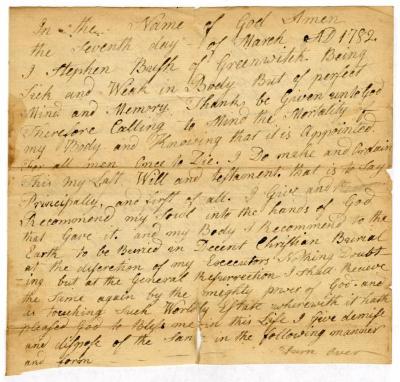 In the Name of God Amen
the Seventh day of March AD 1752
I Stephen Bush of Greenwitch Being
Sick and Weak in Body But of perfect
Mind and Memory Thanks be Given unto God
Therefore Calling to Mind the Mortality of
my Body and Knowing that it is Appointed
for all men Once to Die. I Do make and Ordain
this my Last Will and testament, that is to Say
Principally, and first of all. I Give and
Recommend my Soul into the hands of God
that Gave it, and my Body I Recommend to the
Earth to be Buried in Decent Christian Burial
at the discretion of my Execcutors Nothing Doubt
ing but at the General Resurrection I shall Receive
the Same again by the mighty power of God. and
as touching Such Worldly Estate wherewith it hath
pleased God to Bless me in this Life I Give demise
and dispose of the Same in the following manner
and form
Turn Over